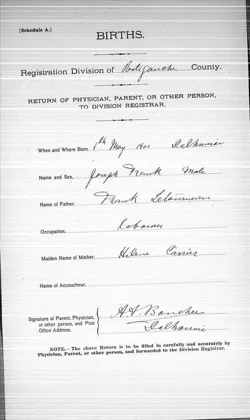 [Schedule A.]
BIRTHS.
Registration Division of Restigouche County.
RETURN OF PHYSICIAN, PARENT, OR OTHER PERSON,
TO DIVISION REGISTRAR.
When and Where Born, May 1901 Dalhousie
Name and Sex, Joseph Frank Male
Name of Father, Frank
Occupation, Laborer
Maiden Name of Mother, Helene
Name of Accoucheur,
Signature of Parent, Physician,
or other person, and Post
Office Address.
Dalhousie
NOTE.—The above Return is to be filled in carefully and accurately by
Physician, Parent, or other person, and forwarded to the Division Registrar.